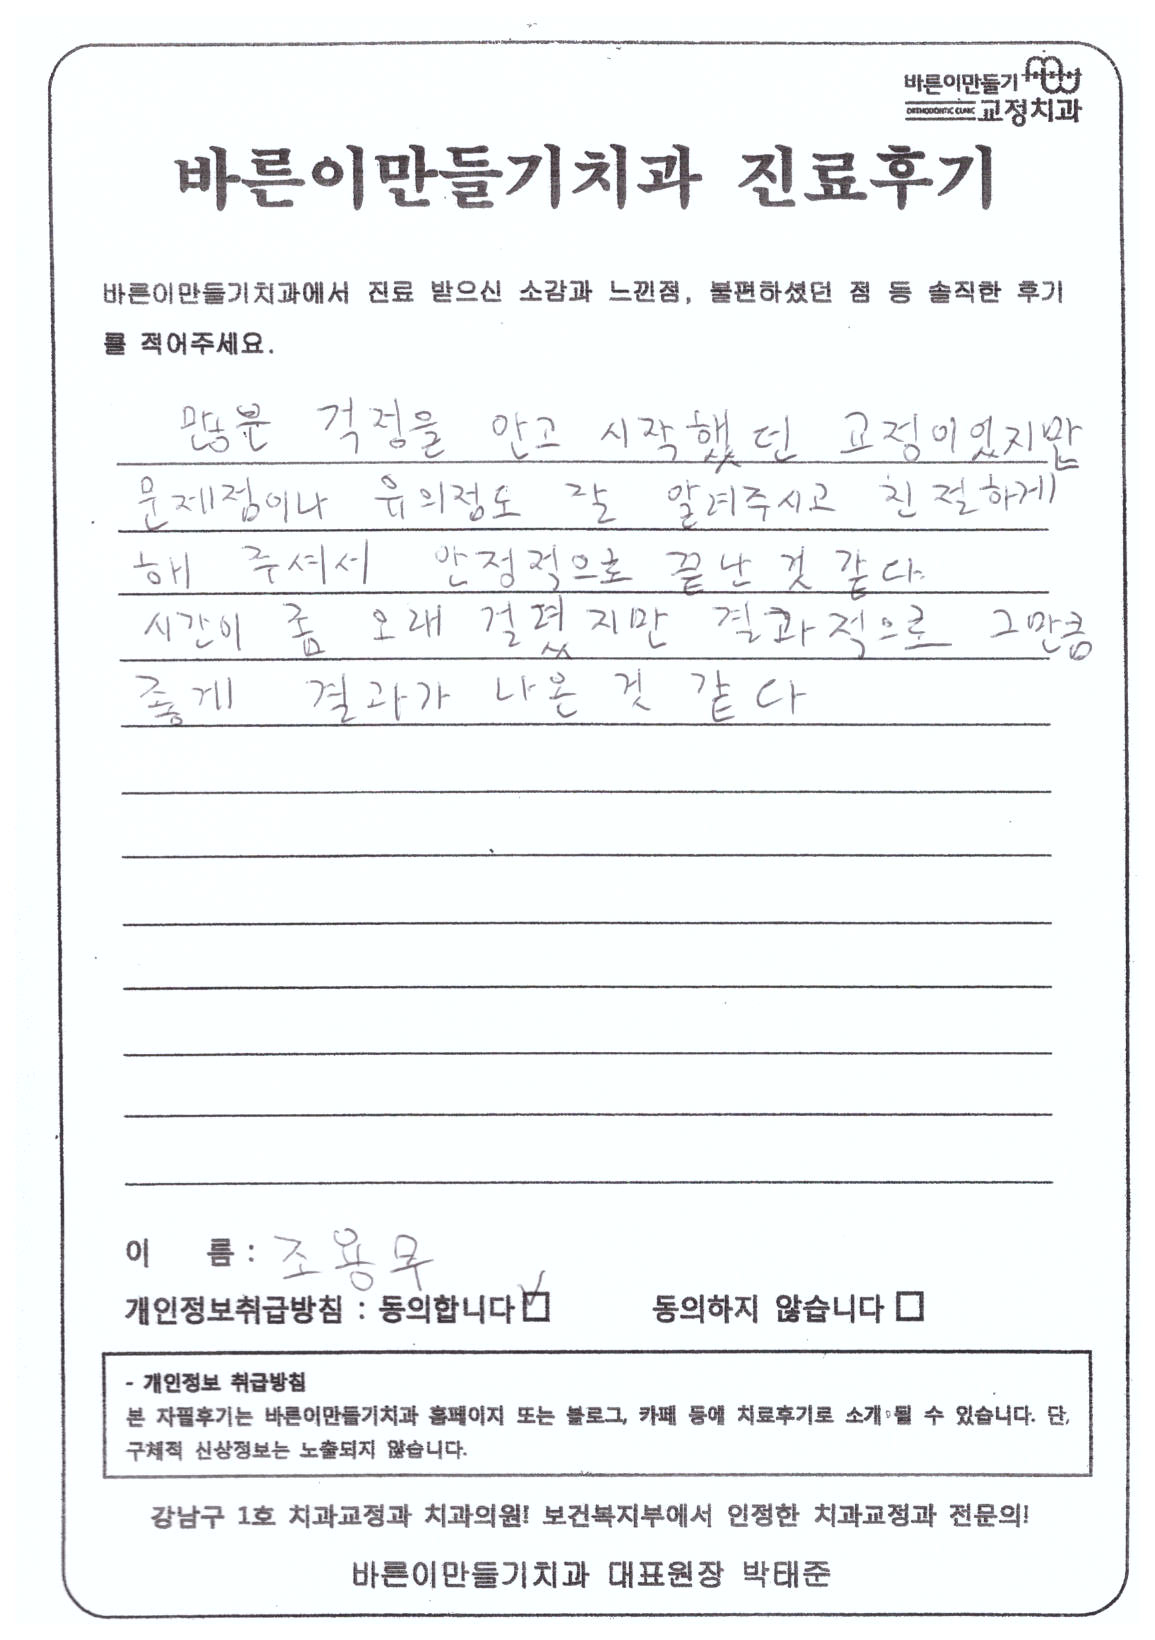 바른이만들기
ORTHODONTIC CLINIC 교정치과
바른이만들기치과 진료후기
바른이만들기치과에서 진료 받으신 소감과 느낀점, 불편하셨던 점 등 솔직한 후기
를 적어주세요.
걱정을 안고 시작했던 교정이었지만
문제점이나 유의점도 잘 알려주시고 친절하게
해 주셔서 안정적으로 끝난 것 같다.
시간이 좀 오래 걸렸지만 결과적으로 그만큼
좋게 결과가 나온 것 같다
이 름 : 조용무
개인정보취급방침 : 동의합니다 동의하지 않습니다
- 개인정보 취급방침
본 자필후기는 바른이만들기치과 홈페이지 또는 블로그, 카페 등에 치료후기로 소개 될 수 있습니다. 단,
구체적 신상정보는 노출되지 않습니다.
강남구 1호 치과교정과 치과의원! 보건복지부에서 인정한 치과교정과 전문의!
바른이만들기치과 대표원장 박태준